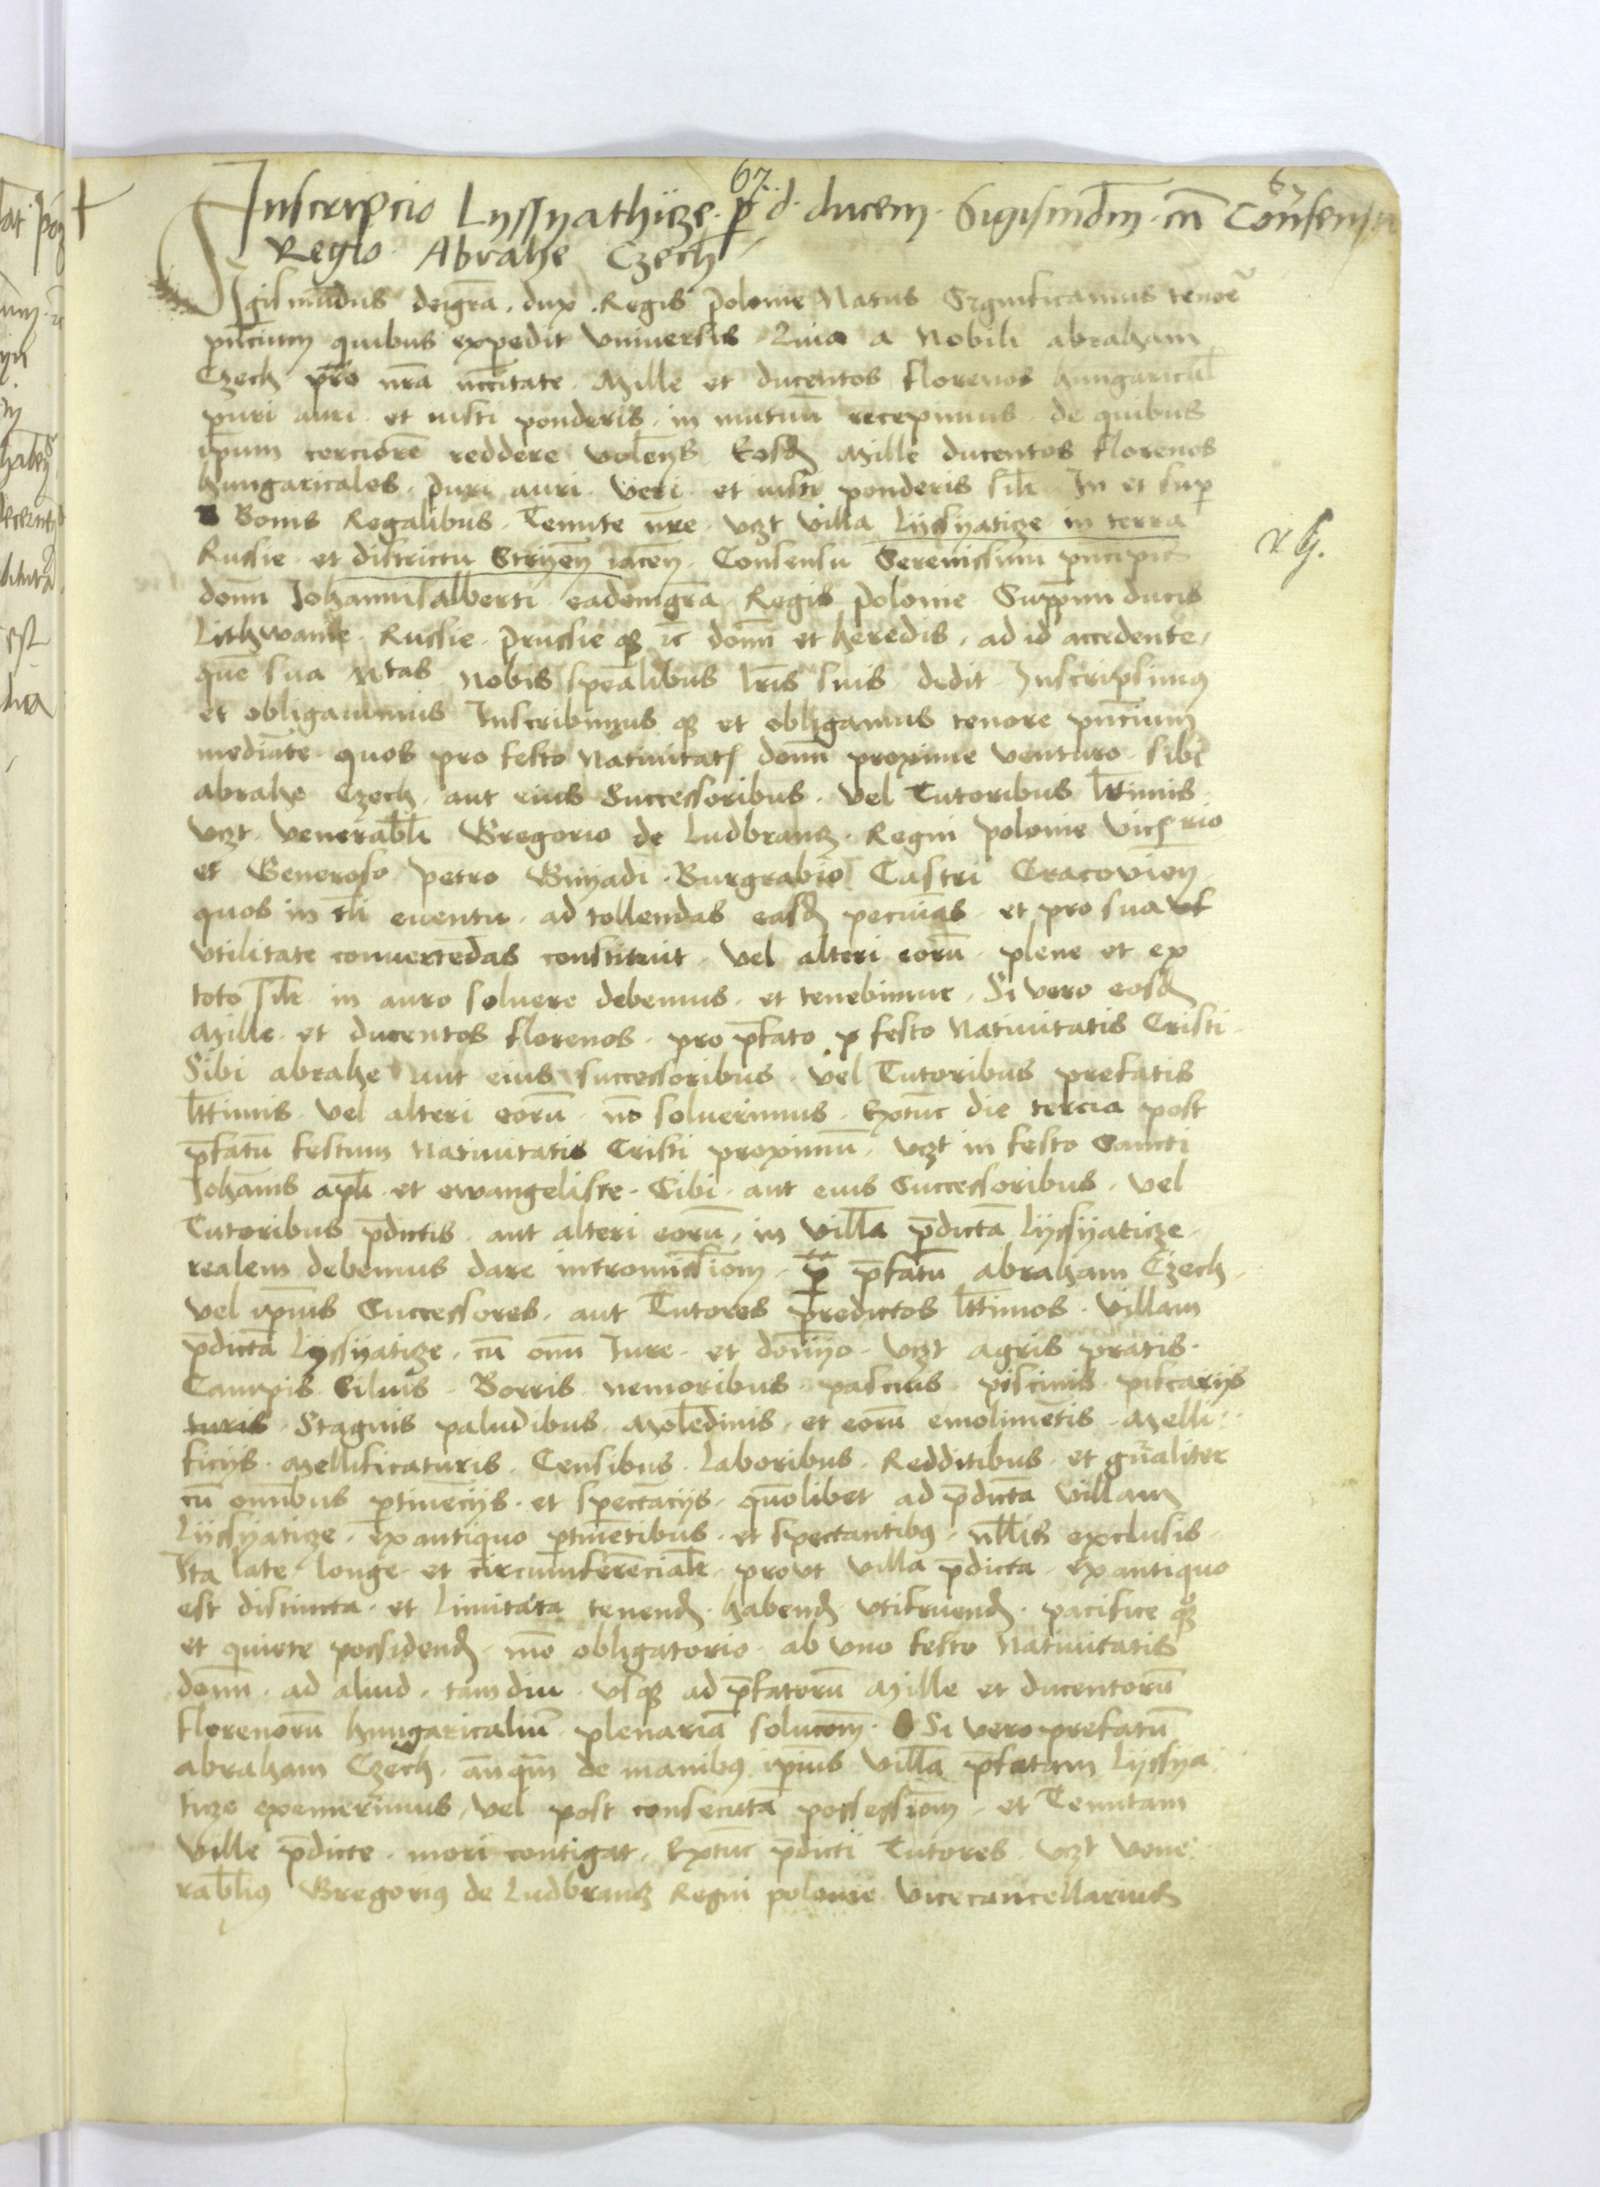 67
67
Inscripcio Lyssyathicze p d. ducem Sigismdm cu Consensu
Regio Abrahe Czech
Sigismudus deigra dux Regis polonie Natus Significamus tenore
pntium quibus expedit Universis Quia a Nobili abraham
Czech pro nra nccitate Mille et ducentos florenos hungarical
puri auri et iusti ponderis in mutuu recepimus de quibus
ipum cerciore reddere volens Eosd Mille ducentos florenos
hungaricales puri auri veri et iusti ponderis sibi In et sup
Bonis Regalibus Tenute nre vczt villa Lyssyaticze in terra
Russie et districtu Stryen iacen Consensu Serenissimi principis
domi Johannisalberti eademgra Regis polonie Suppmi ducis
Lithwanie Russie prussie q3 ic domi et heredis ad id accedente
que sua Mtas Nobis spealibus lris suis dedit Inscripsimus
et obligauimus Inscribimus q3 et obligamus tenore pntium
mediate quos pro festo Natiuitatis domi proxime venturo sibi
abrahe Czech aut eius Successoribus vel Tutoribus lttimis
vczt venerabli Gregorio de Ludbrancz Regni polonie vice rio
et Generoso petro Bnyadi Burgrabio Castri Cracovien
quos in tli euentu ad tollendas easd pecuias et pro sua
vtilitate conuertedas constituit vel alteri eoru plene et ex
toto sibi in auro soluere debemus et tenebimur Si vero eosd
Mille et ducentos florenos pro pfato p festo Natiuitatis Cristi
Sibi abrahe aut eius successoribus vel Tutoribus prefatis
lttimis vel alteri eoru no soluerimus Extuc die tercia post
pfatu festum Natiuitatis Cristi proximu vczt in festo Sancti
Johanis apli et ewangeliste Sibi aut eius Successoribus vel
Tutoribus pdictis aut alteri eoru in villa pdicta Lyssyaticze
realem debemus dare intromissiom p pfatu abraham Czech
vel ipius Successores aut Tutores predictos lttimos villam
pdicta Lyssyaticze cu omi Iure et domyo vczt agris pratis
Campis Siluis Borris nemoribus pascuis piscinis piscariis
turis Stagnis paludibus Moledinis et eoru emolimetis Melli
ficiis Mellificaturis Censibus Laboribus Redditibus et gnaliter
cu omibus ptineciis et spectaciis quolibet ad pdicta villam
Lyssyaticze ex antiquo ptinetibus et spectantibus nllis exclusis
Ita late longe et circumferecialr provt villa pdicta ex antiquo
est distincta et limitata tenend habend vtifruend pacifice q3
et quiete possidend mo obligatorio ab vno festo Natiuitatis
domi ad aliud tamdiu vsq3 ad pfatoru Mille et ducentoru
florenoru hungaricaliu plenaria solucom Si vero prefatu
abraham Czech anqm de manibus ipius villa pfatam Lyssya
ticze exemerimus vel post consecuta possessiom et Tenutam
ville pdicte mori contigat Extuc pdicti Tutores vczt vene
rablius Gregorius de Ludbrancz Regni polonie vicecancellarius